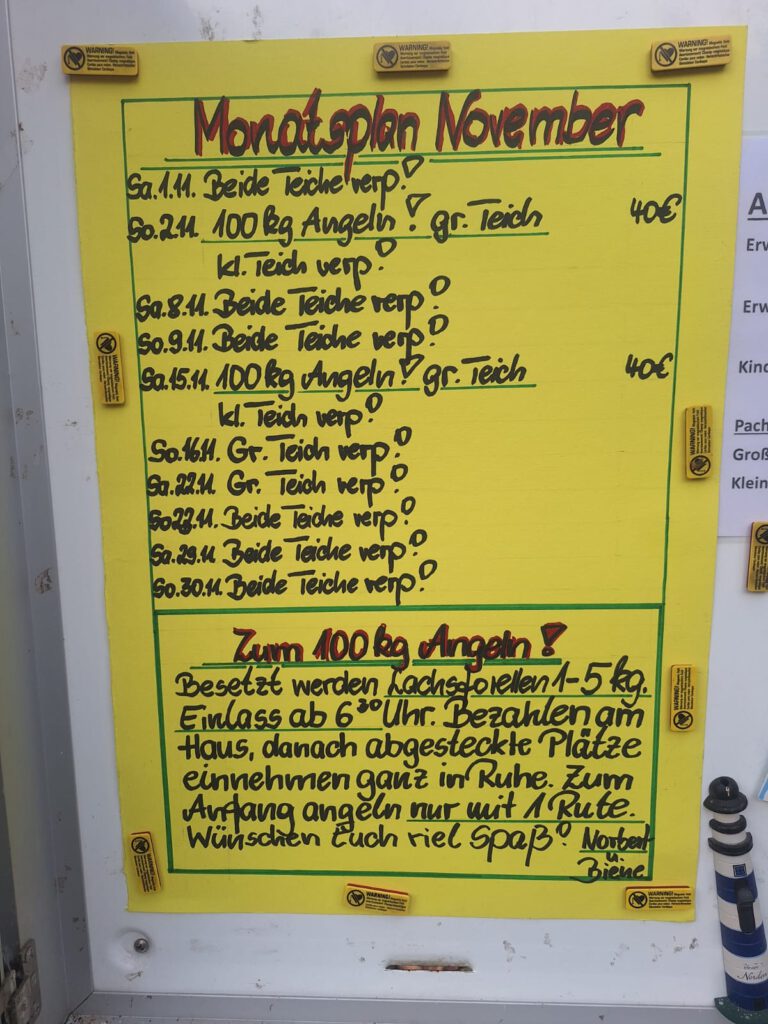 Monatsplan November
Sa.1.11. Beide Teiche verp!
So.2.11. 100 kg Angeln! gr. Teich 40€
kl. Teich verp!
Sa.8.11. Beide Teiche verp!
So.9.11. Beide Teiche verp!
Sa.15.11. 100 kg Angeln! gr. Teich 40€
kl. Teich verp!
So.16.11. Gr. Teich verp!
Sa.22.11. Gr. Teich verp!
So 11. Beide Teiche verp!
Sa.29.11. Beide Teiche verp!
So.30.11. Beide Teiche verp!
Zum 100 kg Angeln!
Besetzt werden Lachsforellen 1-5 kg.
Einlass ab 6³⁰ Uhr. Bezahlen am
Haus, danach abgesteckte Plätze
einnehmen ganz in Ruhe. Zum
Anfang angeln nur mit 1 Rute.
Wünschen Euch viel Spaß! Norbert
u.
Biene
WARNING!
A
Erw
Erw
Kind
Pach
Groß
Klein